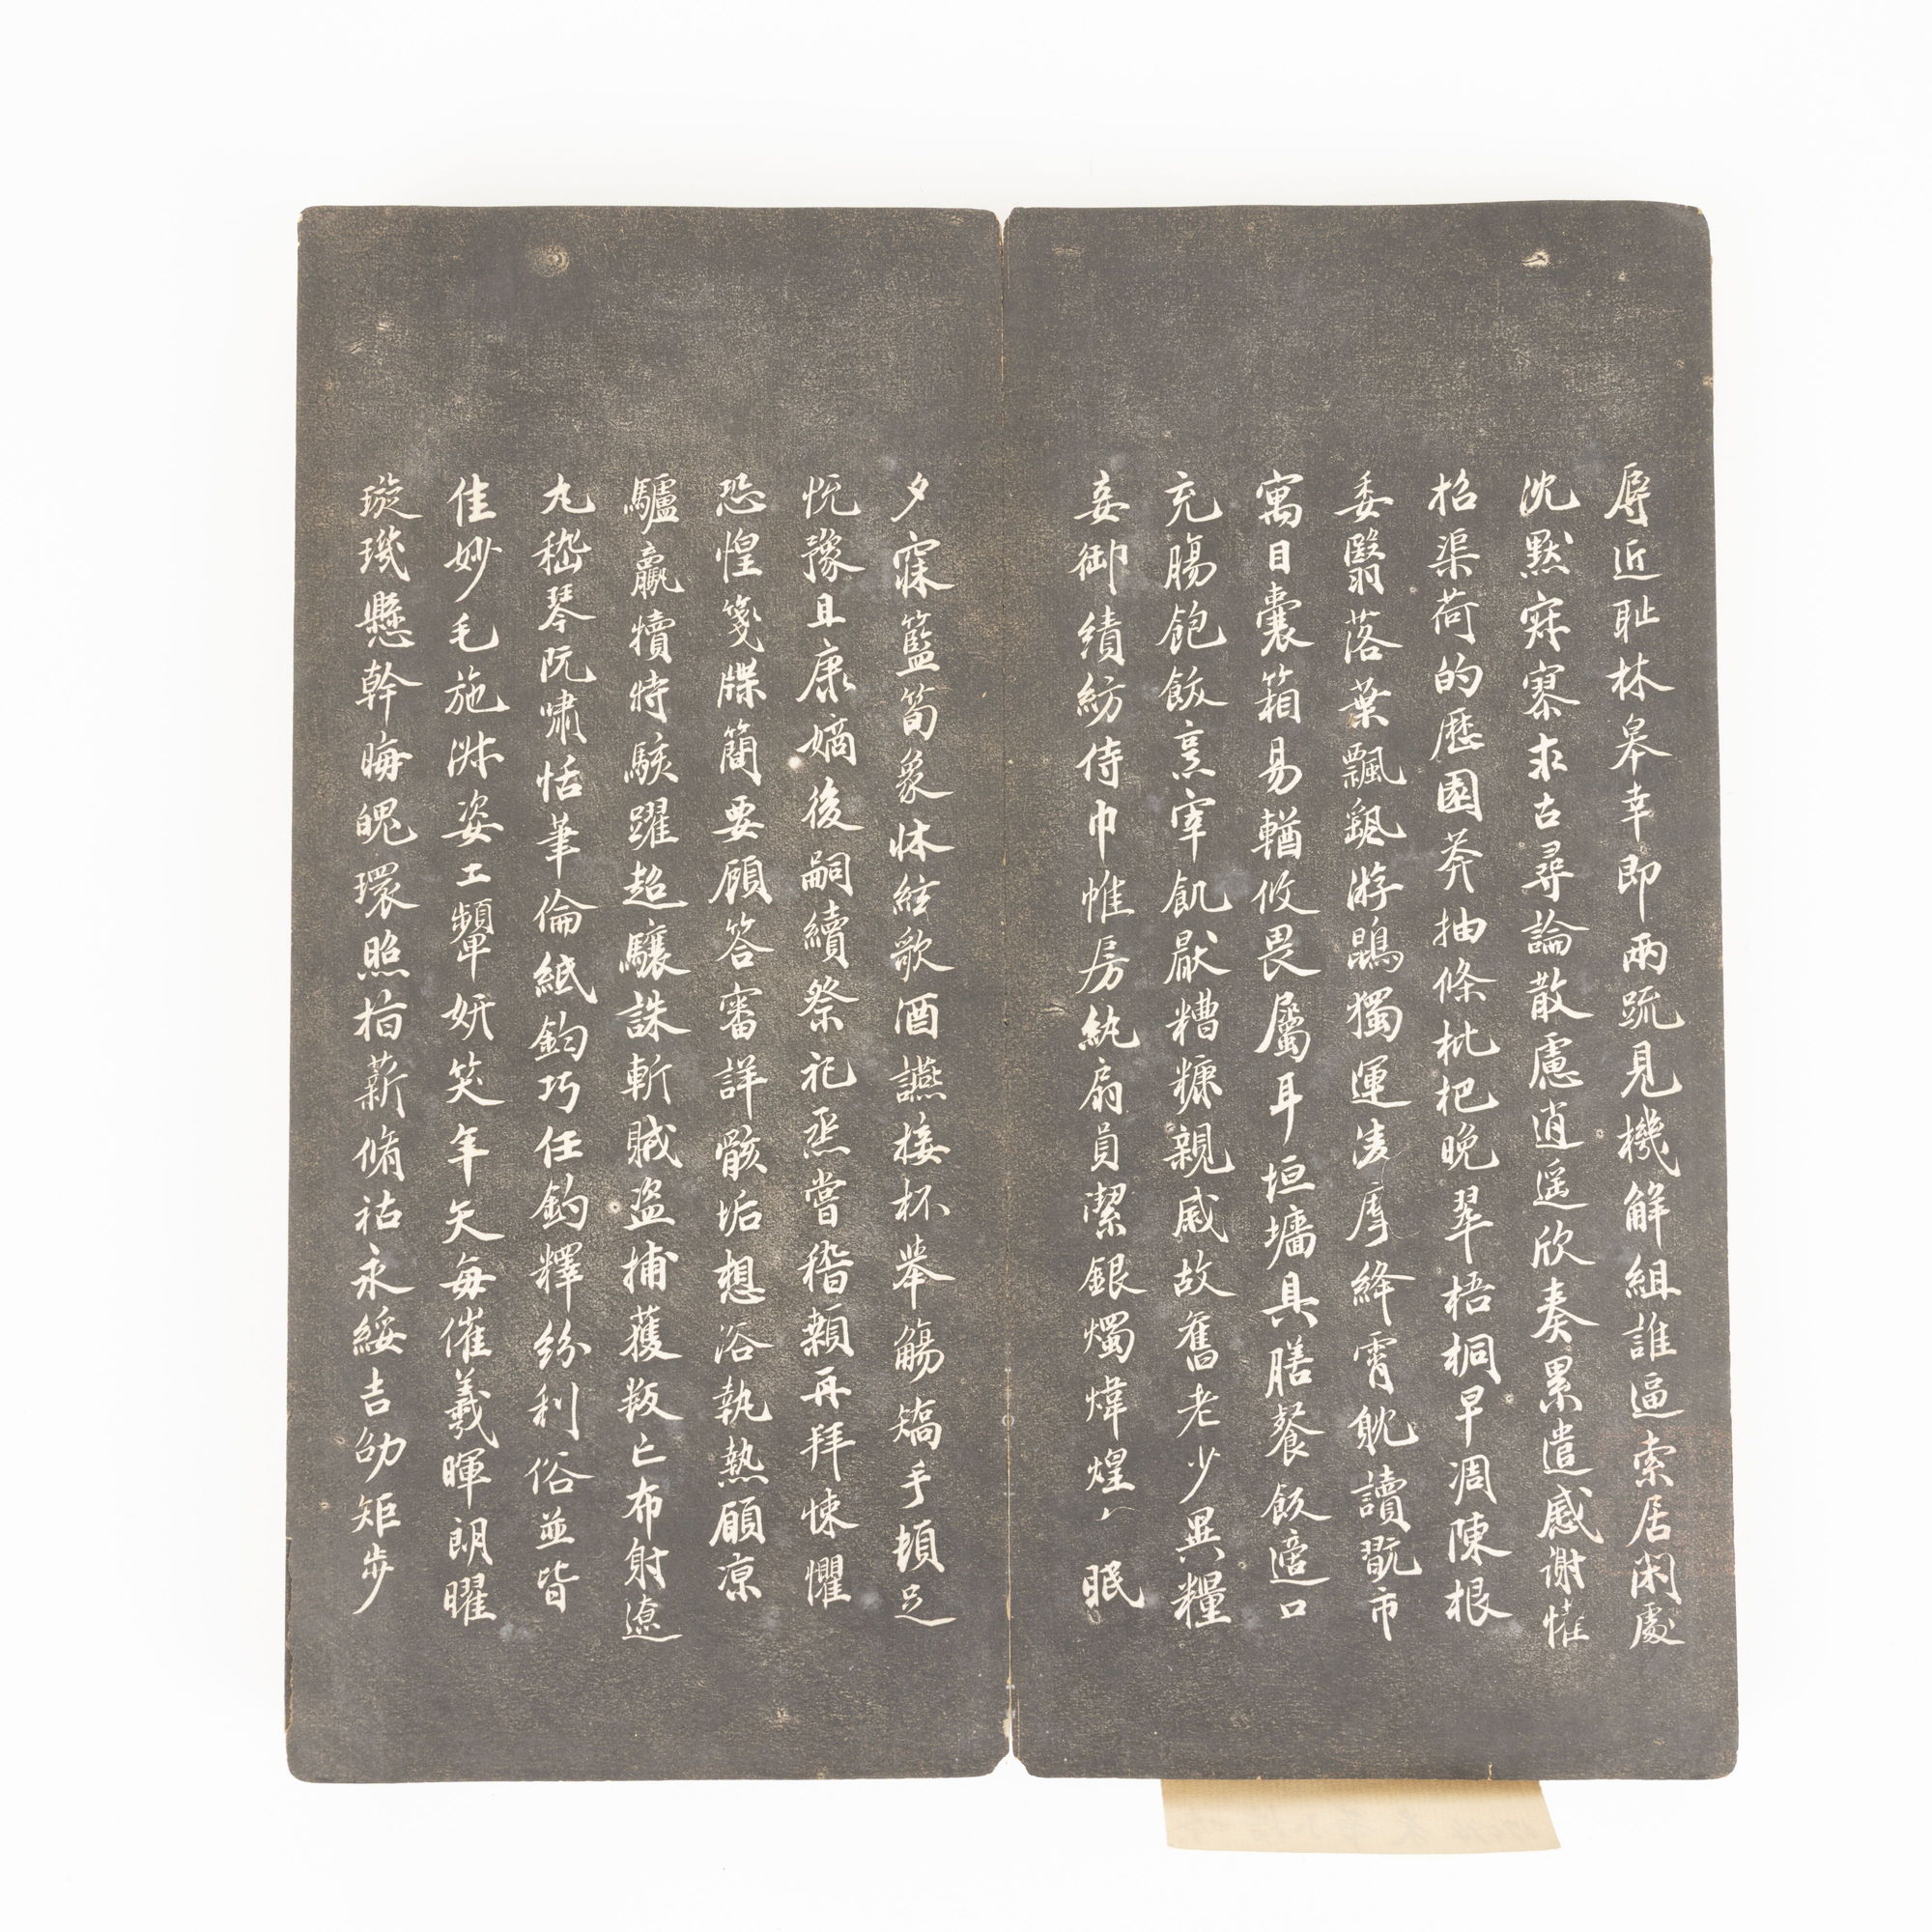 辱近耻林皋幸即兩疏見機解組誰逼索居閑處
沈默寂寥求古尋論散慮逍遥欣奏累遣慼謝懽
招渠荷的歷園莽抽條枇杷晚翠梧桐早凋陳根
委翳落葉飄颻游鵾獨運凌摩絳霄躭讀翫市
寓目囊箱易輶攸畏屬耳垣墻具膳餐飯適口
充腸飽飫烹宰飢猒糟糠親戚故舊老少異糧
妾御績紡侍巾帷房紈扇員潔銀燭煒煌〻眠
夕寐籃筍象床絃歌酒讌接杯舉觴矯手頓足
悅豫且康嫡後嗣續祭祀烝嘗稽顙再拜悚懼
恐惶箋牒簡要顧答審詳骸垢想浴執熱願凉
驢驘犢特駭躍超驤誅斬賊盜捕獲叛亡布射遼
丸嵇琴阮嘯恬筆倫紙鈞巧任釣釋紛利俗並皆
佳妙毛施淑姿工顰妍笑年矢每催羲暉朗曜
璇璣懸斡晦魄環照指薪脩祜永綏吉劭矩步